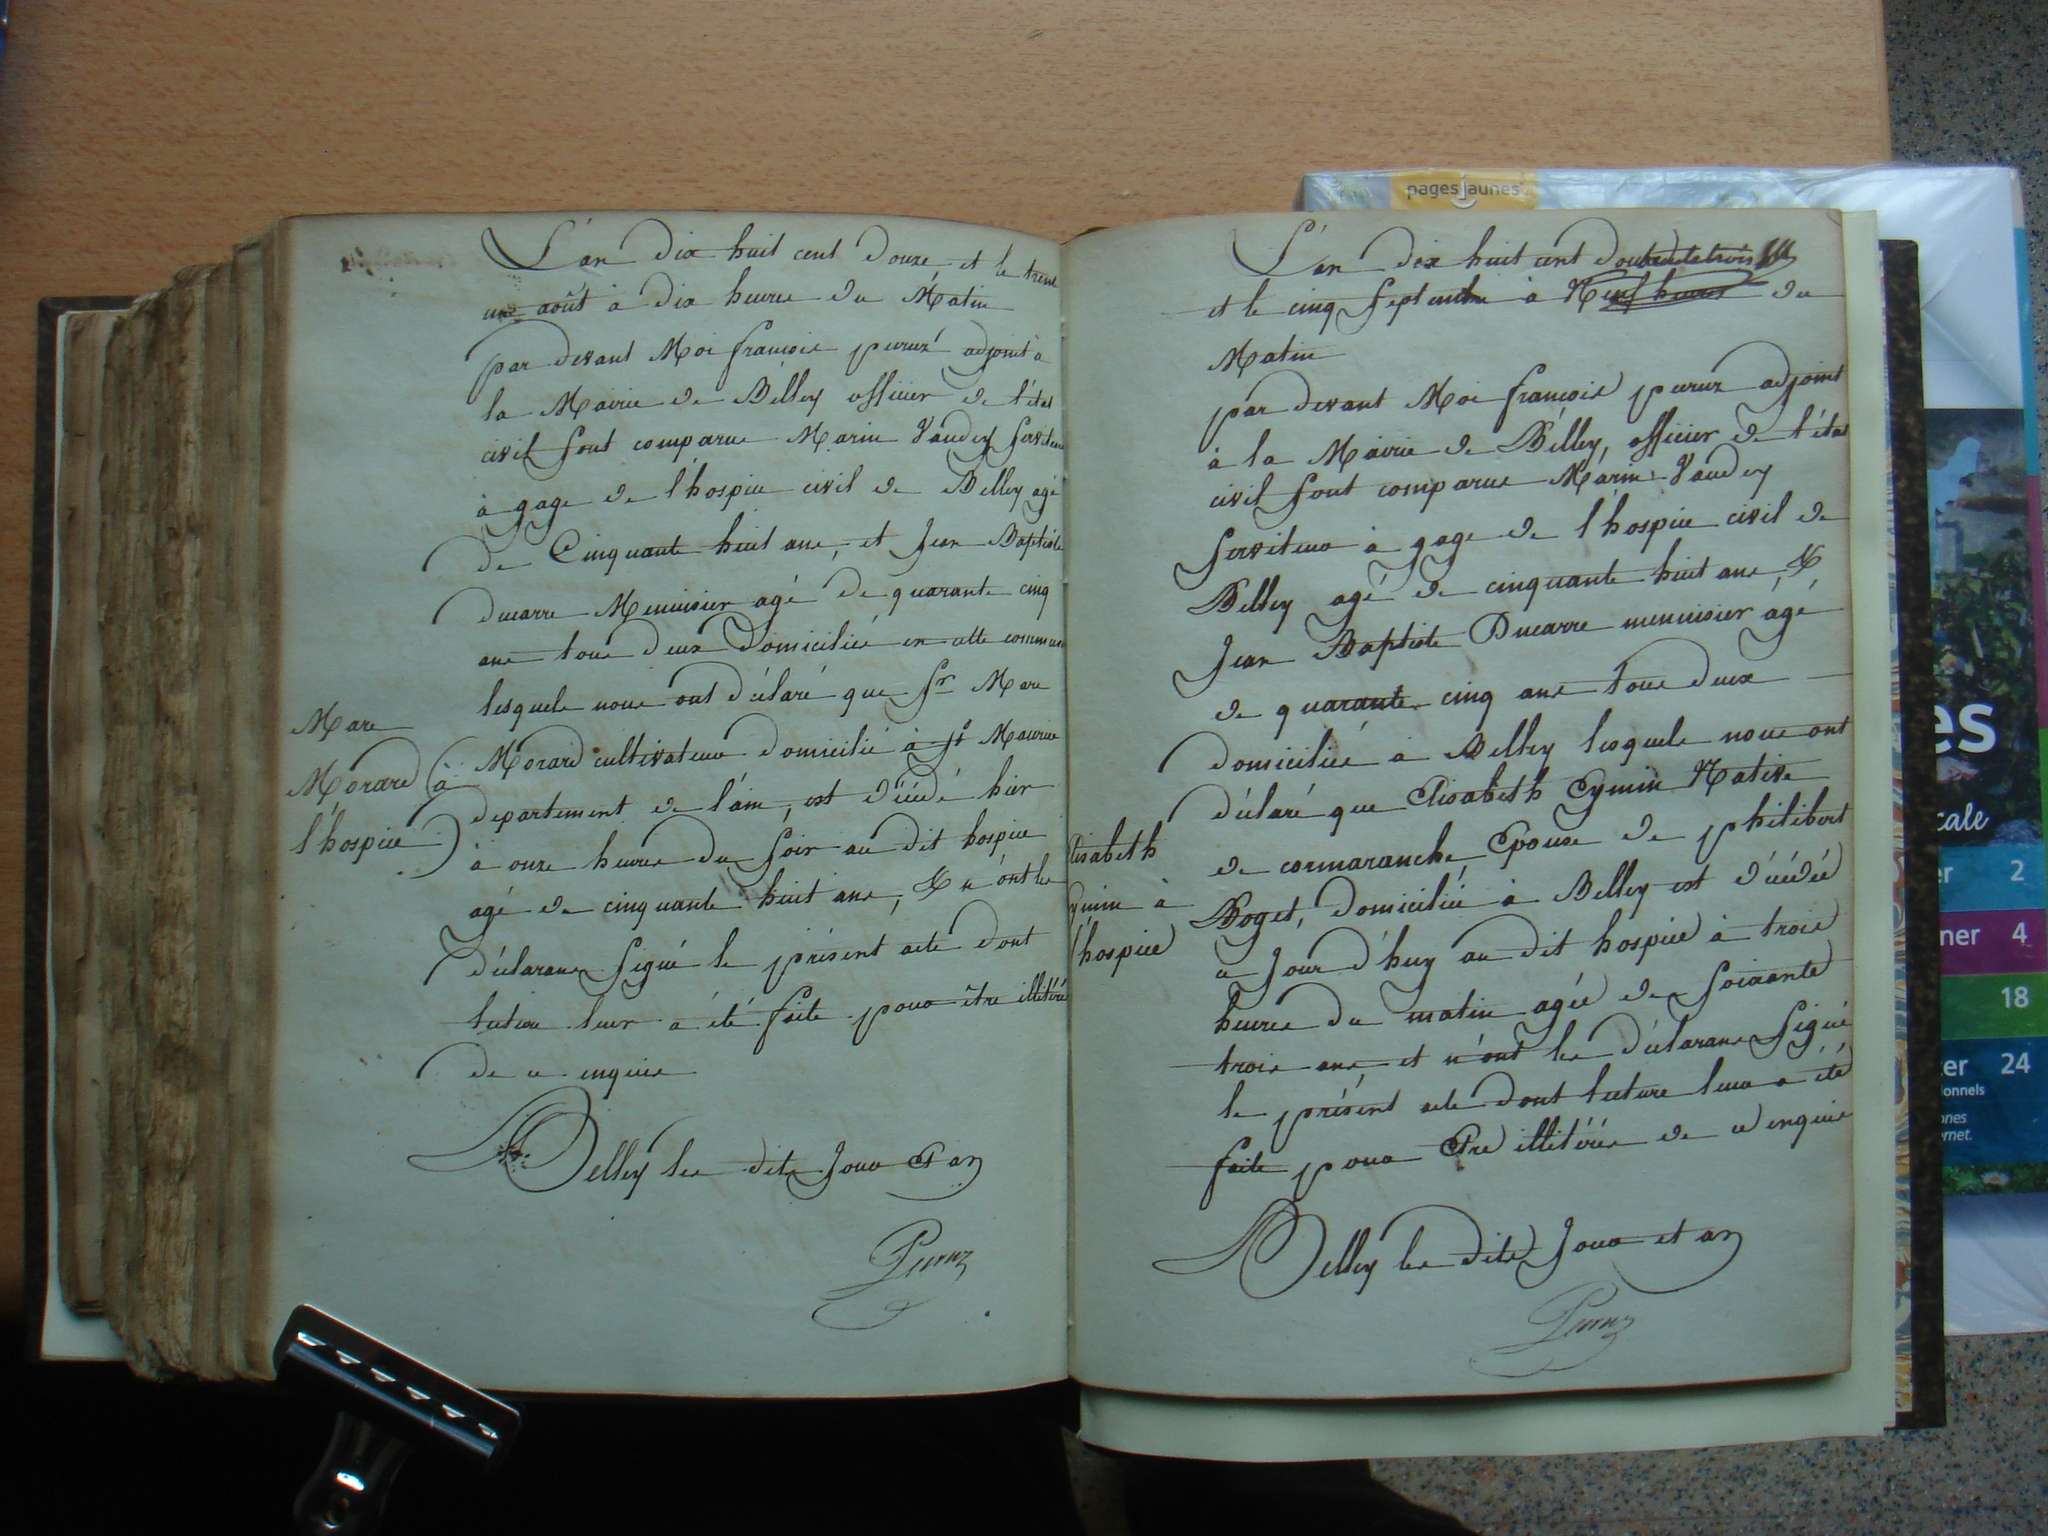 L'an dix huit cent douze et le trente
un août à dix heures du Matin
par devant Moi françois peruz adjoint à
la Mairie de Belley officier de l'état
civil sont comparus Marin Vaudey serviteur
à gage de l'hospice civil de Belley agé
de Cinquante huit ans, et Jean Baptiste
ducarre Menuisier agé de quarante cinq
ans tous deux Domiciliés en cette commune
lesquels nous ont déclaré que Sr Marc
Morard cultivateur domicilié à St Maurice
departement de l'ain, est décédé hier
à onze heures du soir au dit hospice
agé de cinquante huit ans, & n'ont les
déclarans signé le présent acte dont
lecture leur a été faite pour être illitérés
de ce enquis
Belley les dits Jour et an
Peruz
Marc
Morard à
l'hospice
L'an dix huit cent douze
et le cinq septembre à Neuf heures du
Matin
par devant Moi françois peruz adjoint
à la Mairie de Belley, officier de l'état
civil sont comparus Marin Vaudey
serviteur à gage de l'hospice civil de
Belley agé de cinquante huit ans, &
Jean Baptiste Ducarre menuisier agé
de quarante cinq ans tous deux
domiciliés à Belley lesquels nous ont
déclaré que Elisabeth Eymin Native
de cormaranche Epouse de philibert
Boget, domiciliée à Belley est décédée
ce jour d'huy au dit hospice à trois
heures du matin agée de soixante
trois ans et n'ont les déclarans signé
le présent acte dont lecture leur a été
faite pour Etre illitérés de ce enquis
Belley les dits Jour et an
Peruz
Elisabeth
Eymin à
l'hospice
pages jaunes
es
cale
er 2
ner 4
18
ter 24
onnels
ones
ernet.